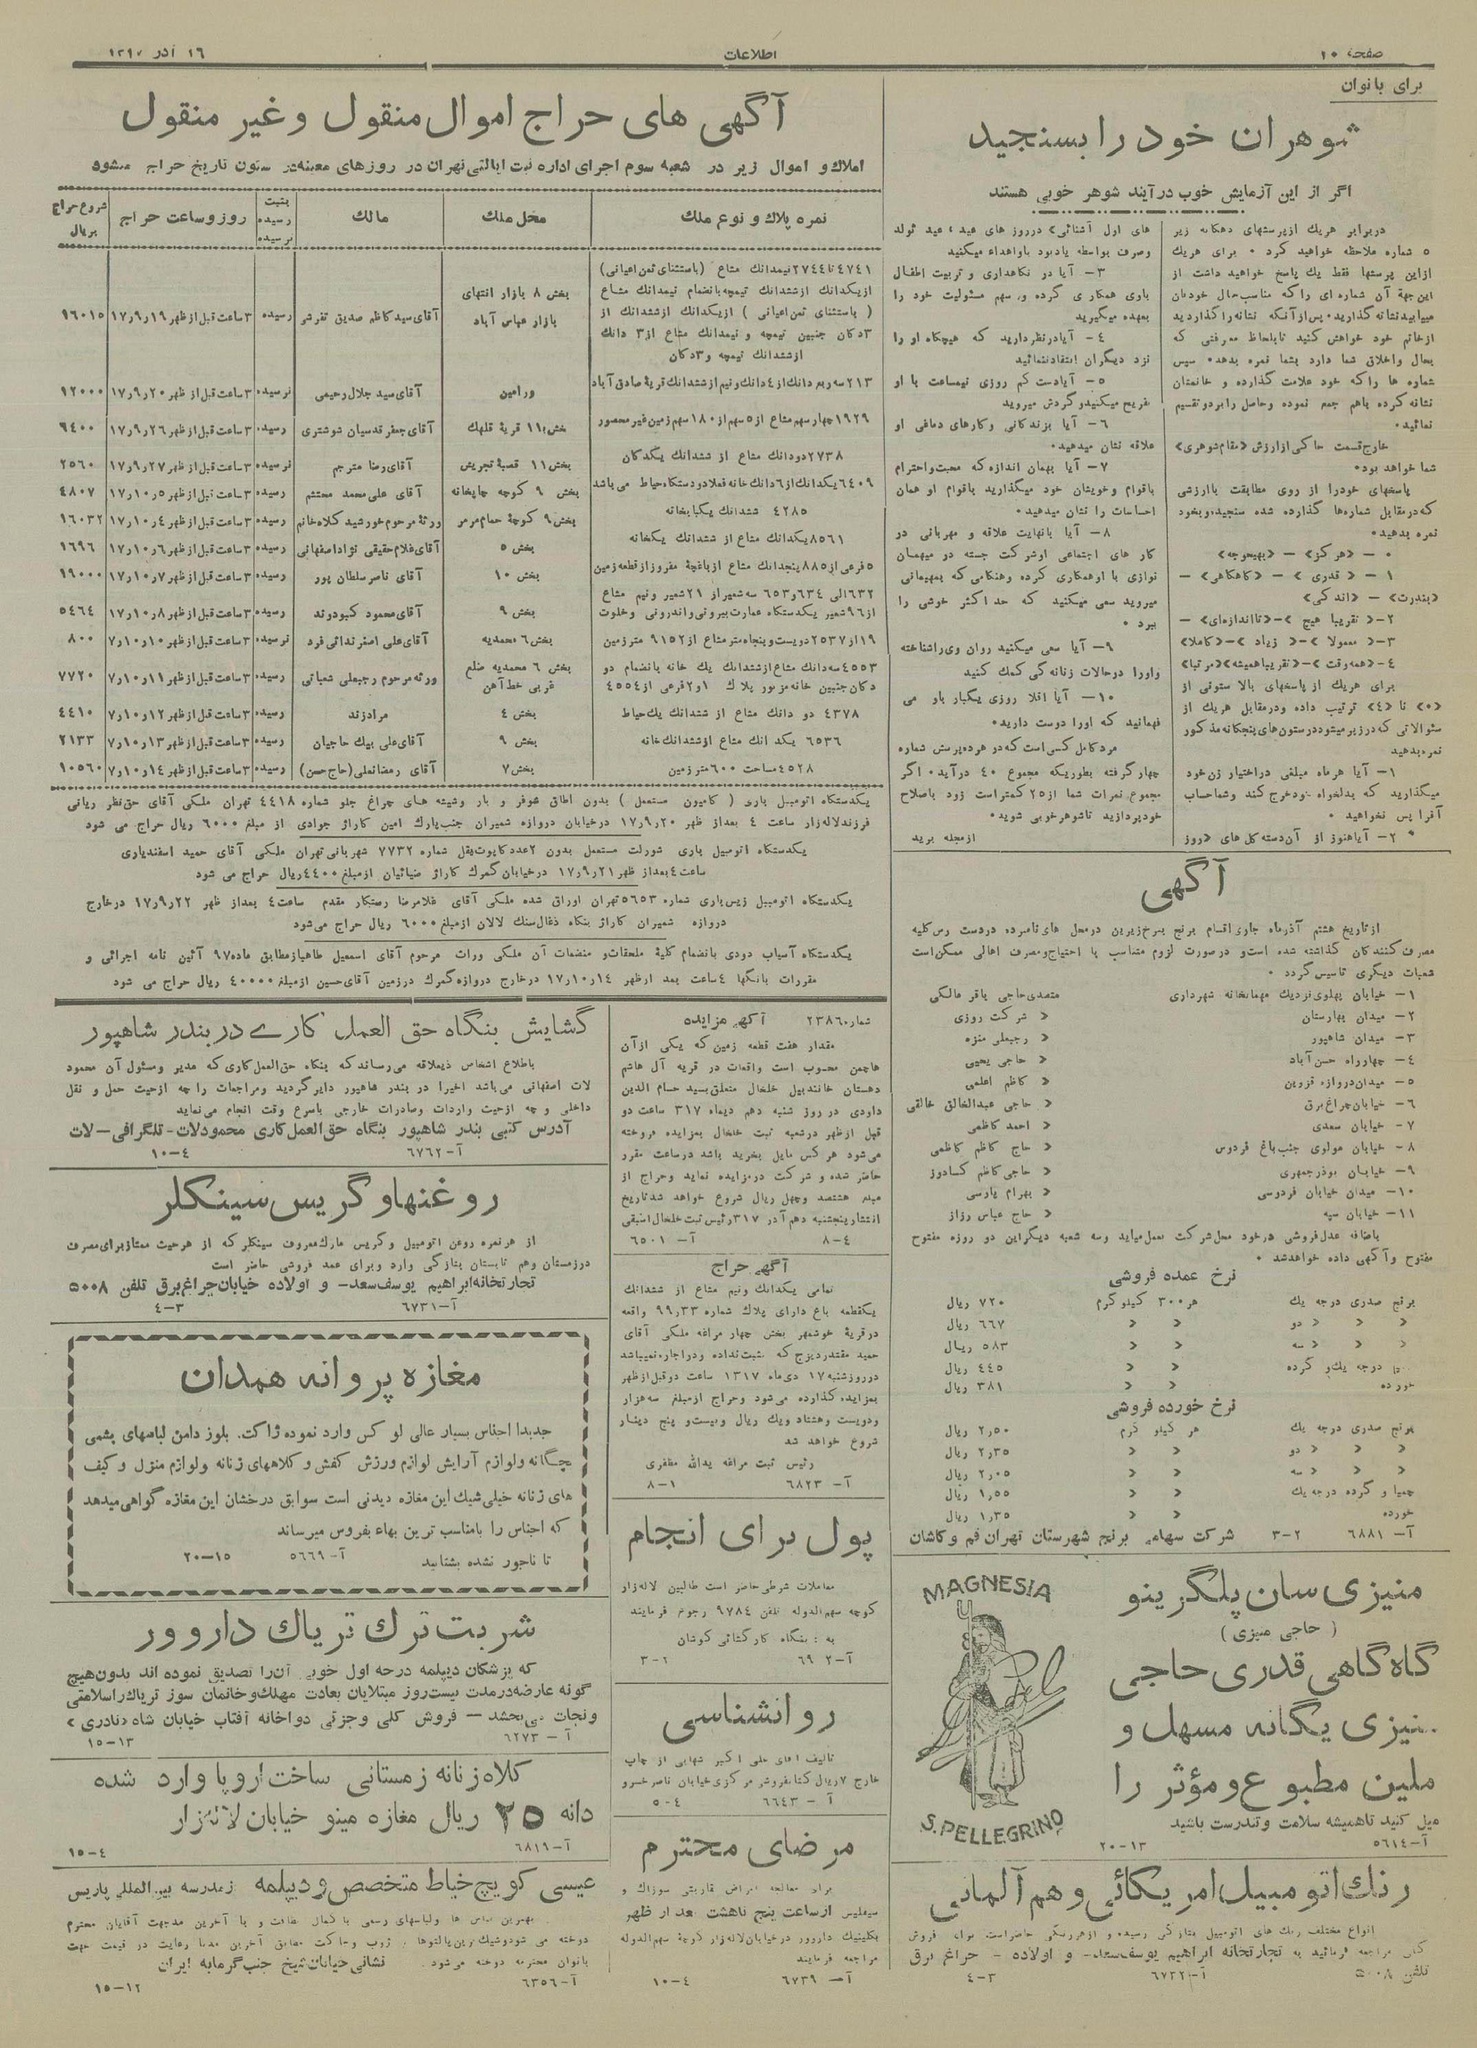 صفحه ۱۰
اطلاعات
۱۶ آذر ۱۳۱۷
برای بانوان
شوهران خود را بسنجید
اگر از این آزمایش خوب درآیند شوهر خوبی هستند
دربرابر هریك ازپرسشهای دهگانه زیر
۵ شماره ملاحظه خواهید کرد ۰ برای هریك
ازاین پرسشها فقط یك پاسخ خواهید داشت از
این جهة آن شماره ای راکه مناسب حال خودتان
مییابید نشانه گذارید۰ پس از آنکه نشانه راگذاردید
ازخانم خود خواهش کنید تابلحاظ معرفتی که
بحال واخلاق شما دارد بشما نمره بدهد۰ سپس
شماره ها راکه خود علامت گذارده و خانمتان
نشانه کرده باهم جمع نموده وحاصل رابردو تقسیم
نمائید۰
خارج قسمت حاکی ازارزش «مقام شوهری»
شما خواهد بود۰
پاسخهای خودرا از روی مطابقت باارزشی
که درمقابل شماره‌ها گذارده شده سنجیده وبخود
نمره بدهید۰
۰ – «هرگز» – «بهیچوجه»
۱ – « قدری » – «گاهگاهی» –
«بندرت» – «اندکی»
۲–« تقریبا هیچ »–«تااندازه‌ای» –
۳–« معمولا »–« زیاد »–«کاملا»
۴–«همه وقت »–«تقریباهمیشه»«مرتبا»
برای هریك از پاسخهای بالا ستونی از
«۰» تا «۴» ترتیب داده ودرمقابل هریك از
سئوالاتی که درزیر میشود درستون های پنجگانه مذکور
نمره بدهید
۱– آیا هرماه مبلغی دراختیار زن خود
میگذارید که بدلخواه خود خرج کند وشماحساب
آنرا پس نخواهید ۰
۲– آیاهنوز از آن دسته گل های «روز
های اول آشنائی» درروز های عید ، عید تولد
وصرف بواسطه یادبود باواهداء میکنید
۳– آیا در نگاهداری و تربیت اطفال
باوی همکاری کرده و، سهم مسئولیت خود را
بعهده میگیرید
۴– آیادرنظر دارید که هیچگاه او را
نزد دیگران انتقاد ننمائید
۵– آیادست کم روزی نیمساعت با او
تفریح میکنید وگردش میروید
۶– آیا بزندگانی وکارهای دماغی او
علاقه نشان میدهید۰
۷– آیا بهمان اندازه که محبت واحترام
باقوام وخویشان خود میگذارید باقوام او همان
احساسات را نشان میدهید۰
۸– آیا بانهایت علاقه و مهربانی در
کار های اجتماعی اوشرکت جسته در میهمان
نوازی با اوهمکاری کرده وهنگامی که بمهمانی
میروید سعی میکنید که حد اکثر خوشی را
ببرد ۰
۹– آیا سعی میکنید روان وی راشناخته
واورا درحالات زنانه گی کمك کنید
۱۰– آیا اقلا روزی یکبار باو می
فهمانید که اورا دوست دارید۰
مرد کامل کسی است که در هرده پرسش شماره
چهار گرفته بطوریکه مجموع ۴۰ درآید۰ اگر
مجموع نمرات شما از۲۵ کمتراست زود باصلاح
خود پردازید تاشوهر خوبی شوید۰
ازمجله برید
آگهی
ازتاریخ هشتم آذرماه جاری اقسام برنج بنرخ زیرین درمحل های نامبرده دردست رس کلیه
مصرف کنندگان گذاشته شده است ودرصورت لزوم متناسب با احتیاج ومصرف اهالی ممکن است
شعبات دیگری تاسیس گردد ۰
۱– خیابان پهلوی نزدیك مهمانخانه شهرداری متصدی حاجی باقر مالکی
۲– میدان بهارستان « شرکت روزی
۳– میدان شاهپور « رجبعلی منزه
۴– چهارراه حسن آباد « حاجی یحیی
۵– میدان دروازه قزوین « کاظم اعلمی
۶– خیابان چراغ برق « حاجی عبدالخالق خالقی
۷– خیابان سعدی « احمد کاظمی
۸– خیابان مولوی جنب باغ فردوس « حاج کاظم کاظمی
۹– خیابان بوذرجمهری « حاجی کاظم کسادوز
۱۰– میدان خیابان فردوسی « بهرام پارسی
۱۱– خیابان سپه « حاج عباس رزاز
باضافه عدل فروشی درخود محل شرکت بعمل میاید وسه شعبه دیگر این دو روزه مفتوح
مفتوح وآگهی داده خواهدشد ۰
نرخ عمده فروشی
برنج صدری درجه یك هر۳۰۰ کیلو گرم ۷۲۰ ریال
« « « دو « « ۶۶۷ ریال
« « « سه « « ۵۸۳ ریال
درجه یك و گرده « « ۴۴۵ ریال
خورده « « ۳۸۱ ریال
نرخ خورده فروشی
برنج صدری درجه یك هر کیلو گرم ۲٫۵۰ ریال
« « « دو « « ۲٫۳۵ ریال
« « « سه « « ۲٫۰۵ ریال
چمپا و گرده درجه یك « « ۱٫۵۵ ریال
خورده « « ۱٫۳۵ ریال
آ– ۶۸۸۱ ۲–۳ شرکت سهامی برنج شهرستان تهران قم و کاشان
منیزی سان پلگرینو
( حاجی منیزی )
گاه گاهی قدری حاجی
منیزی یگانه مسهل و
ملین مطبوع و مؤثر را
میل کنید تاهمیشه سلامت و تندرست باشید
آ–۵۶۱۴ ۱۳–۲۰
MAGNESIA
S. PELLEGRINO
رنك اتومبیل امریکائی وهم آلمانی
انواع مختلف رنك های اتومبیل بتازگی رسیده و ازهررنگی حاضراست برای فروش
کلی مراجعه فرمائید به تجارتخانه ابراهیم یوسف سعد – و اولاده – چراغ برق
تلفن ۵۰۰۸ آ–۶۷۳۲ ۳–۴
آگهی های حراج اموال منقول و غیر منقول
املاك و اموال زیر در شعبه سوم اجرای اداره ثبت ایالتی تهران در روزهای معینه در ستون تاریخ حراج میشود
نمره پلاك و نوع ملك | محل ملك | مالك | بثبت رسیده نرسیده | روز و ساعت حراج | شروع حراج بریال
۴۷۴۱ تا ۲۷۴۴ نیمدانك مشاع (باستثنای ثمن اعیانی)
ازیکدانك ازششدانك تیمچه بانضمام نیمدانك مشاع
( باستثنای ثمن اعیانی ) ازیکدانك ازششدانك از
۳دکان جنبین تیمچه و نیمدانك مشاع از۳ دانك
ازششدانك تیمچه و۳دکان | بخش ۸ بازار انتهای بازار عباس آباد | آقای سید کاظم صدیق تفرشی | رسیده | ۳ساعت قبل از ظهر ۱۷٫۹٫۱۹ | ۱۶۰۱۵
۲۱۳ سه وربع دانك از۴ دانك ونیم ازششدانك قریة صادق آباد | ورامین | آقای سید جلال رحیمی | نرسیده | ۳ساعت قبل از ظهر ۱۷٫۹٫۲۰ | ۱۲۰۰۰
۱۹۲۹ چهار سهم مشاع از ۵ سهم از ۱۸۰ سهم زمین غیر محصور | بخش۱۱ قریة قلهك | آقای جعفر قدسیان شوشتری | رسیده | ۳ساعت قبل از ظهر ۱۷٫۹٫۲۶ | ۶۴۰۰
۲۷۳۸ دودانك مشاع از ششدانك یکدکان | بخش ۱۱ قصبة تجریش | آقای رضا مترجم | نرسیده | ۳ساعت قبل از ظهر ۱۷٫۹٫۲۷ | ۲۵۶۰
۶۴۰۹ یکدانك از۶ دانك خانه فعلا دودستگاه حیاط می باشد | بخش ۹ کوچه چاپخانه | آقای علی محمد محتشم | رسیده | ۳ساعت قبل از ظهر ۱۷٫۱۰٫۵ | ۴۸۰۷
۴۲۸۵ ششدانك یکبابخانه | بخش ۹ کوچة حمام مرمر | ورثة مرحوم خورشید کلاه خانم | رسیده | ۳ساعت قبل از ظهر ۱۷٫۱۰٫۴ | ۱۶۰۳۲
۸۵۶۱ یکدانك مشاع از ششدانك یکخانه | بخش ۵ | آقای غلام حقیقی نژاد اصفهانی | رسیده | ۳ساعت قبل از ظهر ۱۷٫۱۰٫۶ | ۱۶۹۶
۵ فرعی از۸۸۵ پنجدانك مشاع از باغچة مفروز از قطعه زمین | بخش ۱۰ | آقای ناصر سلطان پور | رسیده | ۳ساعت قبل از ظهر ۱۷٫۱۰٫۷ | ۱۹۰۰۰
۶۳۲ الی ۶۳۴ و۶۵۳ سه شعیر از ۲۱ شعیر ونیم مشاع
از۹۶ شعیر یکدستگاه عمارت بیرونی واندرونی وخلوت | بخش ۹ | آقای محمود کبودوند | رسیده | ۳ساعت قبل از ظهر ۱۷٫۱۰٫۸ | ۵۴۶۴
۱۹ از۲۵۳۷ دویست وپنجاه متر مشاع از ۹۱۵۲ متر زمین | بخش ۶ محمدیه | آقای علی اصغر ندائی فرد | نرسیده | ۳ساعت قبل از ظهر ۷٫۱۰٫۱۰ | ۸۰۰
۴۵۵۳ سه دانك مشاع ازششدانك یك خانه بانضمام دو
دکان جنبین خانه مزبور پلاك ۱و۲ فرعی از ۴۵۵۴ | بخش ۶ محمدیه ضلع غربی خط آهن | ورثه مرحوم رجبعلی شعبانی | رسیده | ۳ساعت قبل از ظهر ۷٫۱۰٫۱۱ | ۷۷۲۰
۴۳۷۸ دو دانك مشاع از ششدانك یك حیاط | بخش ۴ | مرادزند | رسیده | ۳ساعت قبل از ظهر ۷٫۱۰٫۱۲ | ۴۴۱۰
۶۵۳۶ یکدانك مشاع ازششدانك خانه | بخش ۹ | آقای علی بیك حاجیان | رسیده | ۳ساعت قبل از ظهر ۷٫۱۰٫۱۳ | ۲۱۳۳
۴۵۲۸ مساحت ۶۰۰ متر زمین | بخش ۷ | آقای رمضانعلی (حاج حسن) | رسیده | ۳ساعت قبل از ظهر ۷٫۱۰٫۱۴ | ۱۰۵۶۰
یکدستگاه اتومبیل باری ( کامیون مستعمل ) بدون اطاق شوفر و بار وشیشه های چراغ جلو شماره ۴۴۱۸ تهران ملکی آقای حق نظر ربانی
فرزند لاله زار ساعت ۴ بعداز ظهر ۱۷٫۹٫۲۰ درخیابان دروازه شمیران جنب پارك امین گاراژ جوادی از مبلغ ۶۰۰۰ ریال حراج می شود
یکدستگاه اتومبیل باری شورلت مستعمل بدون ۲عدد کاپوت بغل شماره ۷۷۳۲ شهربانی تهران ملکی آقای حمید اسفندیاری
ساعت ۴ بعداز ظهر ۱۷٫۹٫۲۱ درخیابان گمرك گاراژ ضیائیان ازمبلغ ۴۴۰۰ ریال حراج می شود
یکدستگاه اتومبیل زیس باری شماره ۵۶۵۳ تهران اوراق شده ملکی آقای غلامرضا رستکار مقدم ساعت ۴ بعداز ظهر ۱۷٫۹٫۲۲ درخارج
دروازه شمیران گاراژ بنگاه ذغال سنك لالان ازمبلغ ۶۰۰۰ ریال حراج می‌شود
یکدستگاه آسیاب دودی بانضمام کلیة ملحقات و منضمات آن ملکی وراث مرحوم آقای اسمعیل طاهباز مطابق ماده ۹۷ آئین نامه اجرائی و
مقررات بانکها ۴ساعت بعد ازظهر ۱۷٫۱۰٫۱۴ درخارج دروازه گمرك درزمین آقای حسین ازمبلغ ۴۰۰۰۰ ریال حراج می شود
شماره ۲۳۸۶۰ آگهی مزایده
مقدار هفت قطعه زمین که یکی ازآن
هاچمن محسوب است واقعات در قریه آل هاشم
دهستان خانندبیل خلخال متعلق بسید حسام الدین
داودی در روز شنبه دهم دیماه ۳۱۷ ساعت دو
قبل ازظهر درشعبه ثبت خلخال بمزایده فروخته
می‌شود هرکس مایل بخرید باشد درساعت مقرر
حاضر شده و شرکت درمزایده نماید وحراج از
مبلغ هشتصد وچهل ریال شروع خواهد شد تاریخ
انتشار پنجشنبه دهم آذر ۳۱۷ رئیس ثبت خلخال اسبقی
۴–۸ آ– ۶۵۰۱
آگهی حراج
تمامی یکدانك ونیم مشاع از ششدانك
یکقطعه باغ دارای پلاك شماره ۹۹٫۳۳ واقعه
درقریة خوشمهر بخش چهار مراغه ملکی آقای
حمید مقتدر دیزج که ثبت نداده ودراجاره نمیباشد
درروزشنبه ۱۷ دی‌ماه ۱۳۱۷ ساعت دوقبل ازظهر
بمزایده گذارده می‌شود وحراج ازمبلغ سه هزار
ودویست وهشتاد ویك ریال وبیست و پنج دینار
شروع خواهد شد
رئیس ثبت مراغه یدالله مظفری
آ– ۶۸۲۳ ۱–۸
پول برای انجام
معاملات شرطی حاضر است طالبین لاله زار
کوچه سهم الدوله تلفن ۹۷۸۴ رجوع فرمایند
به : بنگاه کارگشائی کوشان
روانشناسی
تالیف آقای علی اکبر شهابی از چاپ
خارج ۷ریال کتابفروشی مرکزی خیابان ناصرخسرو
آ– ۶۶۴۳ ۴–۵
مرضای محترم
برای معالجه امراض مقاربتی سوزاك و
سیفلیس ازساعت پنج تاهشت بعد از ظهر
بکلینیك داروور درخیابان لاله زار کوچه سهم الدوله
مراجعه فرمایند
آ– ۶۷۳۹ ۴–۱۰
گشایش بنگاه حق العمل کاری در بندر شاهپور
باطلاع اشخاص ذیعلاقه می‌رساند که بنگاه حق العمل کاری که مدیر ومسئول آن محمود
لات اصفهانی می‌باشد اخیرا در بندر شاهپور دایر گردید ومراجعات را چه ازحیث حمل و نقل
داخلی و چه ازحیث واردات وصادرات خارجی باسرع وقت انجام می‌نماید
آدرس کتبی بندر شاهپور بنگاه حق العمل کاری محمودلات – تلگرافی – لات
آ–۶۷۶۲ ۴–۱۰
روغنها و گریس سینکلر
از هر نمره روغن اتومبیل و گریس مارك معروف سینکلر که از هرحیث ممتاز برای مصرف
درزمستان وهم تابستان بتازگی وارد وبرای عمد فروشی حاضر است
تجارتخانه ابراهیم یوسف سعد – و اولاده خیابان چراغ برق تلفن ۵۰۰۸
آ–۶۷۳۱ ۳–۴
مغازه پروانه همدان
جدیدا اجناس بسیار عالی لو کس وارد نموده ژاکت. بلوز دامن لباسهای پشمی
بچگانه ولوازم آرایش لوازم ورزش کفش و کلاههای زنانه ولوازم منزل و کیف
های زنانه خیلی شیك این مغازه دیدنی است سوابق درخشان این مغازه گواهی میدهد
که اجناس را بامناسب ترین بهاء بفروش میرساند
تا ناجور نشده بشتابید آ–۵۶۶۹ ۱۵–۲۰
شربت ترك تریاك داروور
که پزشکان دیپلمه درجه اول خوبی آن را تصدیق نموده اند بدون هیچ
گونه عارضه درمدت بیست روز مبتلایان بعادت مهلك وخانمان سوز تریاك راسلامتی
ونجات می‌بخشد – فروش کلی وجزئی دواخانه آفتاب خیابان شاه «نادری»
آ– ۶۲۷۳ ۱۳–۱۵
کلاه زنانه زمستانی ساخت اروپا وارد شده
دانه ۲۵ ریال مغازه مینو خیابان لاله‌زار
آ–۶۸۱۹ ۴–۱۵
عیسی کویچ خیاط متخصص و دیپلمه ازمدرسه بین‌المللی پاریس
بهترین لباس ها ولباسهای رسمی باکمال ظرافت و با آخرین مد جهت آقایان محترم
بانوان محترمه دوخته می‌شود. نشانی خیابان شیخ جنب گرمابه ایران
آ–۶۳۵۶ ۱۲–۱۵